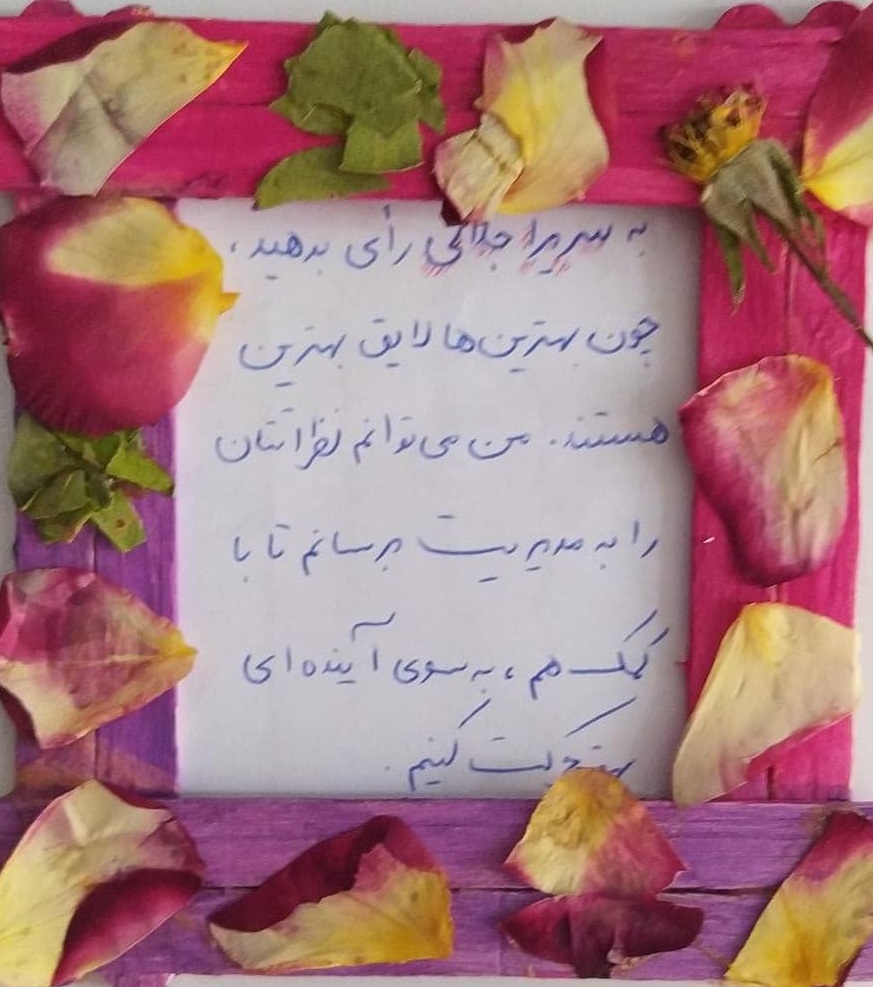 به سریرا جلالی رأی بدهید،
چون بهترین‌ها لایق بهترین
هستند. من می‌توانم نظراتتان
را به مدیریت برسانم تا با
کمک هم، به سوی آینده‌ای
بهتر حرکت کنیم.